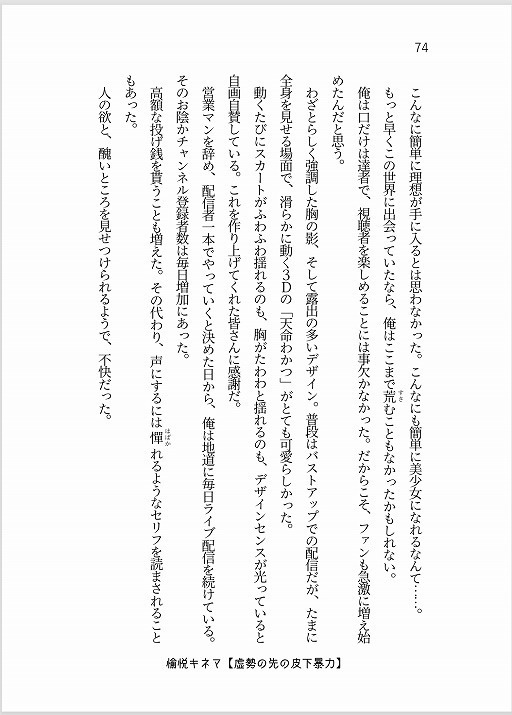 74
こんなに簡単に理想が手に入るとは思わなかった。こんなにも簡単に美少女になれるなんて……。
もっと早くこの世界に出会っていたなら、俺はここまで荒むこともなかったかもしれない。
すさ
俺は口だけは達者で、視聴者を楽しめることには事欠かなかった。だからこそ、ファンも急激に増え始
めたんだと思う。
わざとらしく強調した胸の影、そして露出の多いデザイン。普段はバストアップでの配信だが、たまに
全身を見せる場面で、滑らかに動く3Dの「天命わかつ」がとても可愛らしかった。
動くたびにスカートがふわふわ揺れるのも、胸がたわわと揺れるのも、デザインセンスが光っていると
自画自賛している。これを作り上げてくれた皆さんに感謝だ。
営業マンを辞め、配信者一本でやっていくと決めた日から、俺は地道に毎日ライブ配信を続けている。
そのお陰かチャンネル登録者数は毎日増加にあった。
高額な投げ銭を貰うことも増えた。その代わり、声にするには憚れるようなセリフを読まされること
はばか
もあった。
人の欲と、醜いところを見せつけられるようで、不快だった。
愉悦キネマ【虚勢の先の皮下暴力】